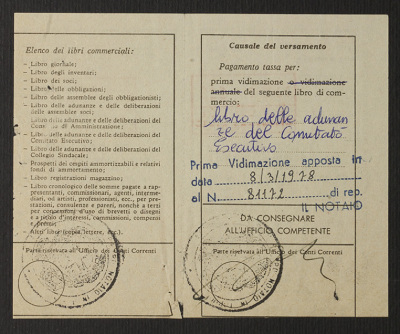 Elenco dei libri commerciali:
— Libro giornale;
— Libro degli inventari;
— Libro dei soci;
— Libro delle obbligazioni;
— Libro delle assemblee degli obbligazionisti;
— Libro delle adunanze e delle deliberazioni
delle assemblee soci;
— Libro delle adunanze e delle deliberazioni del
di Amministrazione;
— Libro delle adunanze e delle deliberazioni del
Comitato Esecutivo;
— Libro delle adunanze e delle deliberazioni del
Collegio Sindacale;
— Prospetti dei cespiti ammortizzabili e relativi
fondi di ammortamento;
— Libro registrazioni magazzino;
— Libro cronologico delle somme pagate a rap-
presentanti, commissionari, agenti, intermedi-
ari, od artisti, professionisti, ecc., per pre-
stazioni, consulenze e pareri, nonché a terzi
per concessioni d'uso di brevetti o disegni
e a titolo d'interessi, commissioni, compensi,
premi;
— Altri libri (copia lettere, etc.).
Parte riservata all'Ufficio dei Conti Correnti
Causale del versamento
Pagamento tassa per:
prima vidimazione o vidimazione
annuale del seguente libro di com-
mercio:
libro delle adunan
ze del Comitato
Esecutivo
Prima Vidimazione apposta in
data 8/3/1978
al N. 81172 di rep.
IL NOTAIO
DA CONSEGNARE
ALL'UFFICIO COMPETENTE
Parte riservata all'Ufficio dei Conti Correnti